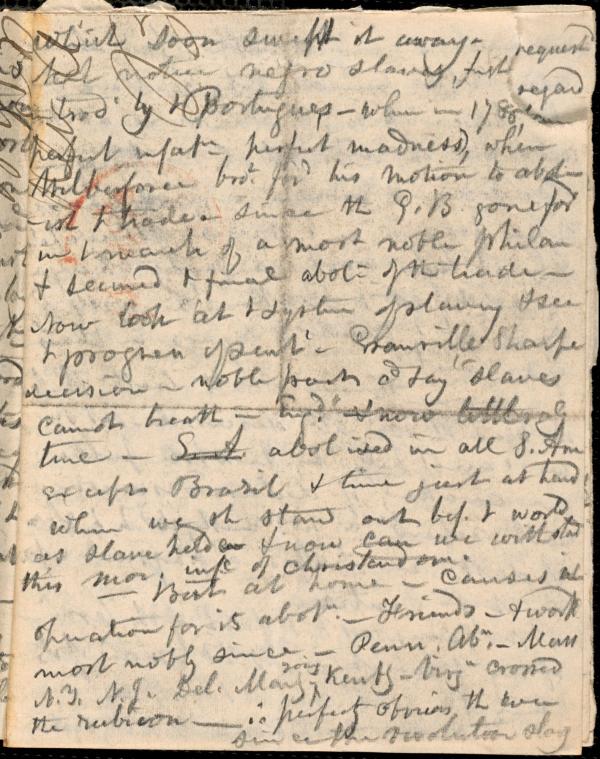 which soon swept it away -
request
but notice negro slaves, first
regard
introd by t Portugues - when in 1788
perfect infatn perfect madness, when
Wilberforce brot ford his motion to abol-
ish t trade - since the G. B. gone ford
in t march of a most noble philan
& secured t final aboln of the trade -
Now look at t system of slavery & see
t progress of sent - Granville Sharpe
decision - noble poets cd say "slaves
cannot breath - Engd" & now litterally
true - S. A. abolised in all S. Am
except Brasil & time just at hand
when we sh stand out bef. t world
as slave holder & now can we withstand
this mor. infc of Christendom.
But at home - Causes in
operation for its aboln - Friends - t work
most nobly since - Penn. Abn - Mass
N.Y. N.J. Del. Mary Kenty - Virga crossed
the rubicon - is perfect obvious, th ever
since the revolution slay